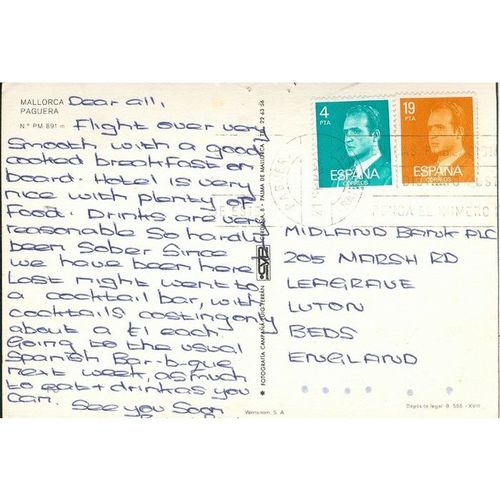 MALLORCA
PAGUERA
N.º PM 891
Dear all,
Flight over very
smooth with a good
cooked breakfast on
board. Hotel is very
nice with plenty of
food. Drinks are very
reasonable so hardly
been sober since
we have been here
last night went to
a cocktail bar, with
cocktails costing only
about a £1 each
Going to the usual
Spanish Bar-b-que
next week, as much
to eat + drink as you
can. See you soon
FOTOGRAFIA CAMPAÑA-PUIG FERRAN
PALMA DE MALLORCA
4
PTA
ESPAÑA
CORREOS
19
PTA
ESPAÑA
CORREOS
MIDLAND BANK PLC
205 MARSH RD
LEAGRAVE
LUTON
BEDS
ENGLAND
Depósito legal B. 555 - XVIII